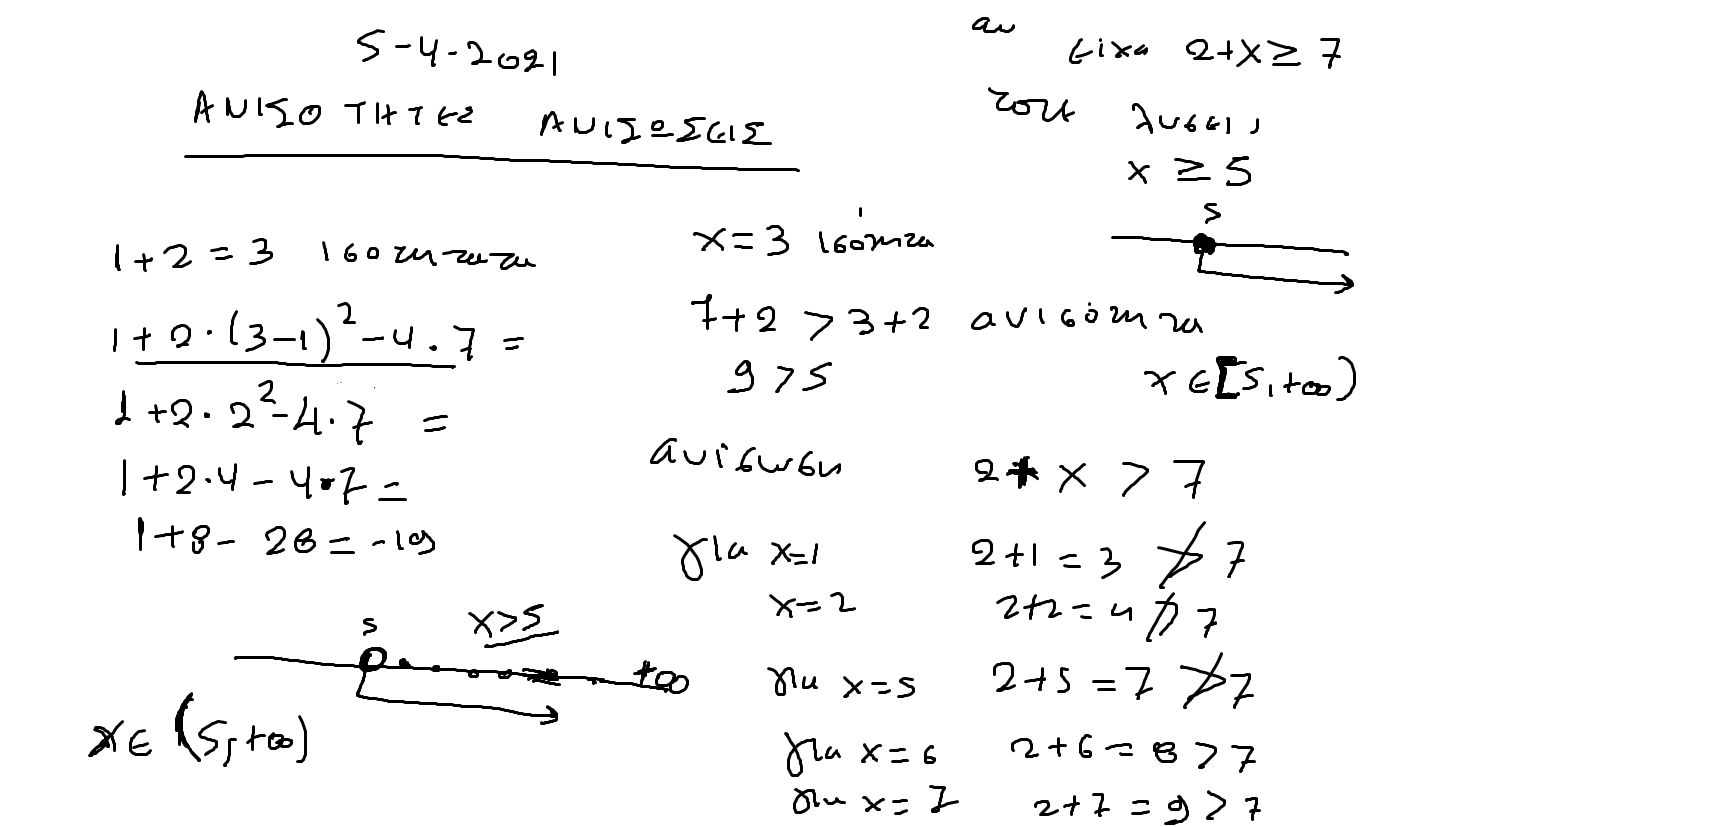 5-4-2021
ΑΝΙΣΟΤΗΤΕΣ ΑΝΙΣΩΣΕΙΣ
1+2=3 ισοτητα
1+2·(3-1)²-4·7=
1+2·2²-4·7 =
1+2·4-4·7=
1+8-28=-19
5 x>5
+∞
x∈(5,+∞)
x=3 ισότητα
7+2>3+2 ανισότητα
9>5
ανίσωση 2+x>7
για x=1 2+1=3≯7
x=2 2+2=4≯7
για x=5 2+5=7≯7
για x=6 2+6=8>7
για x=7 2+7=9>7
αν είχα 2+x≥7
τοτε λυσεις
x≥5
5
x∈[5,+∞)